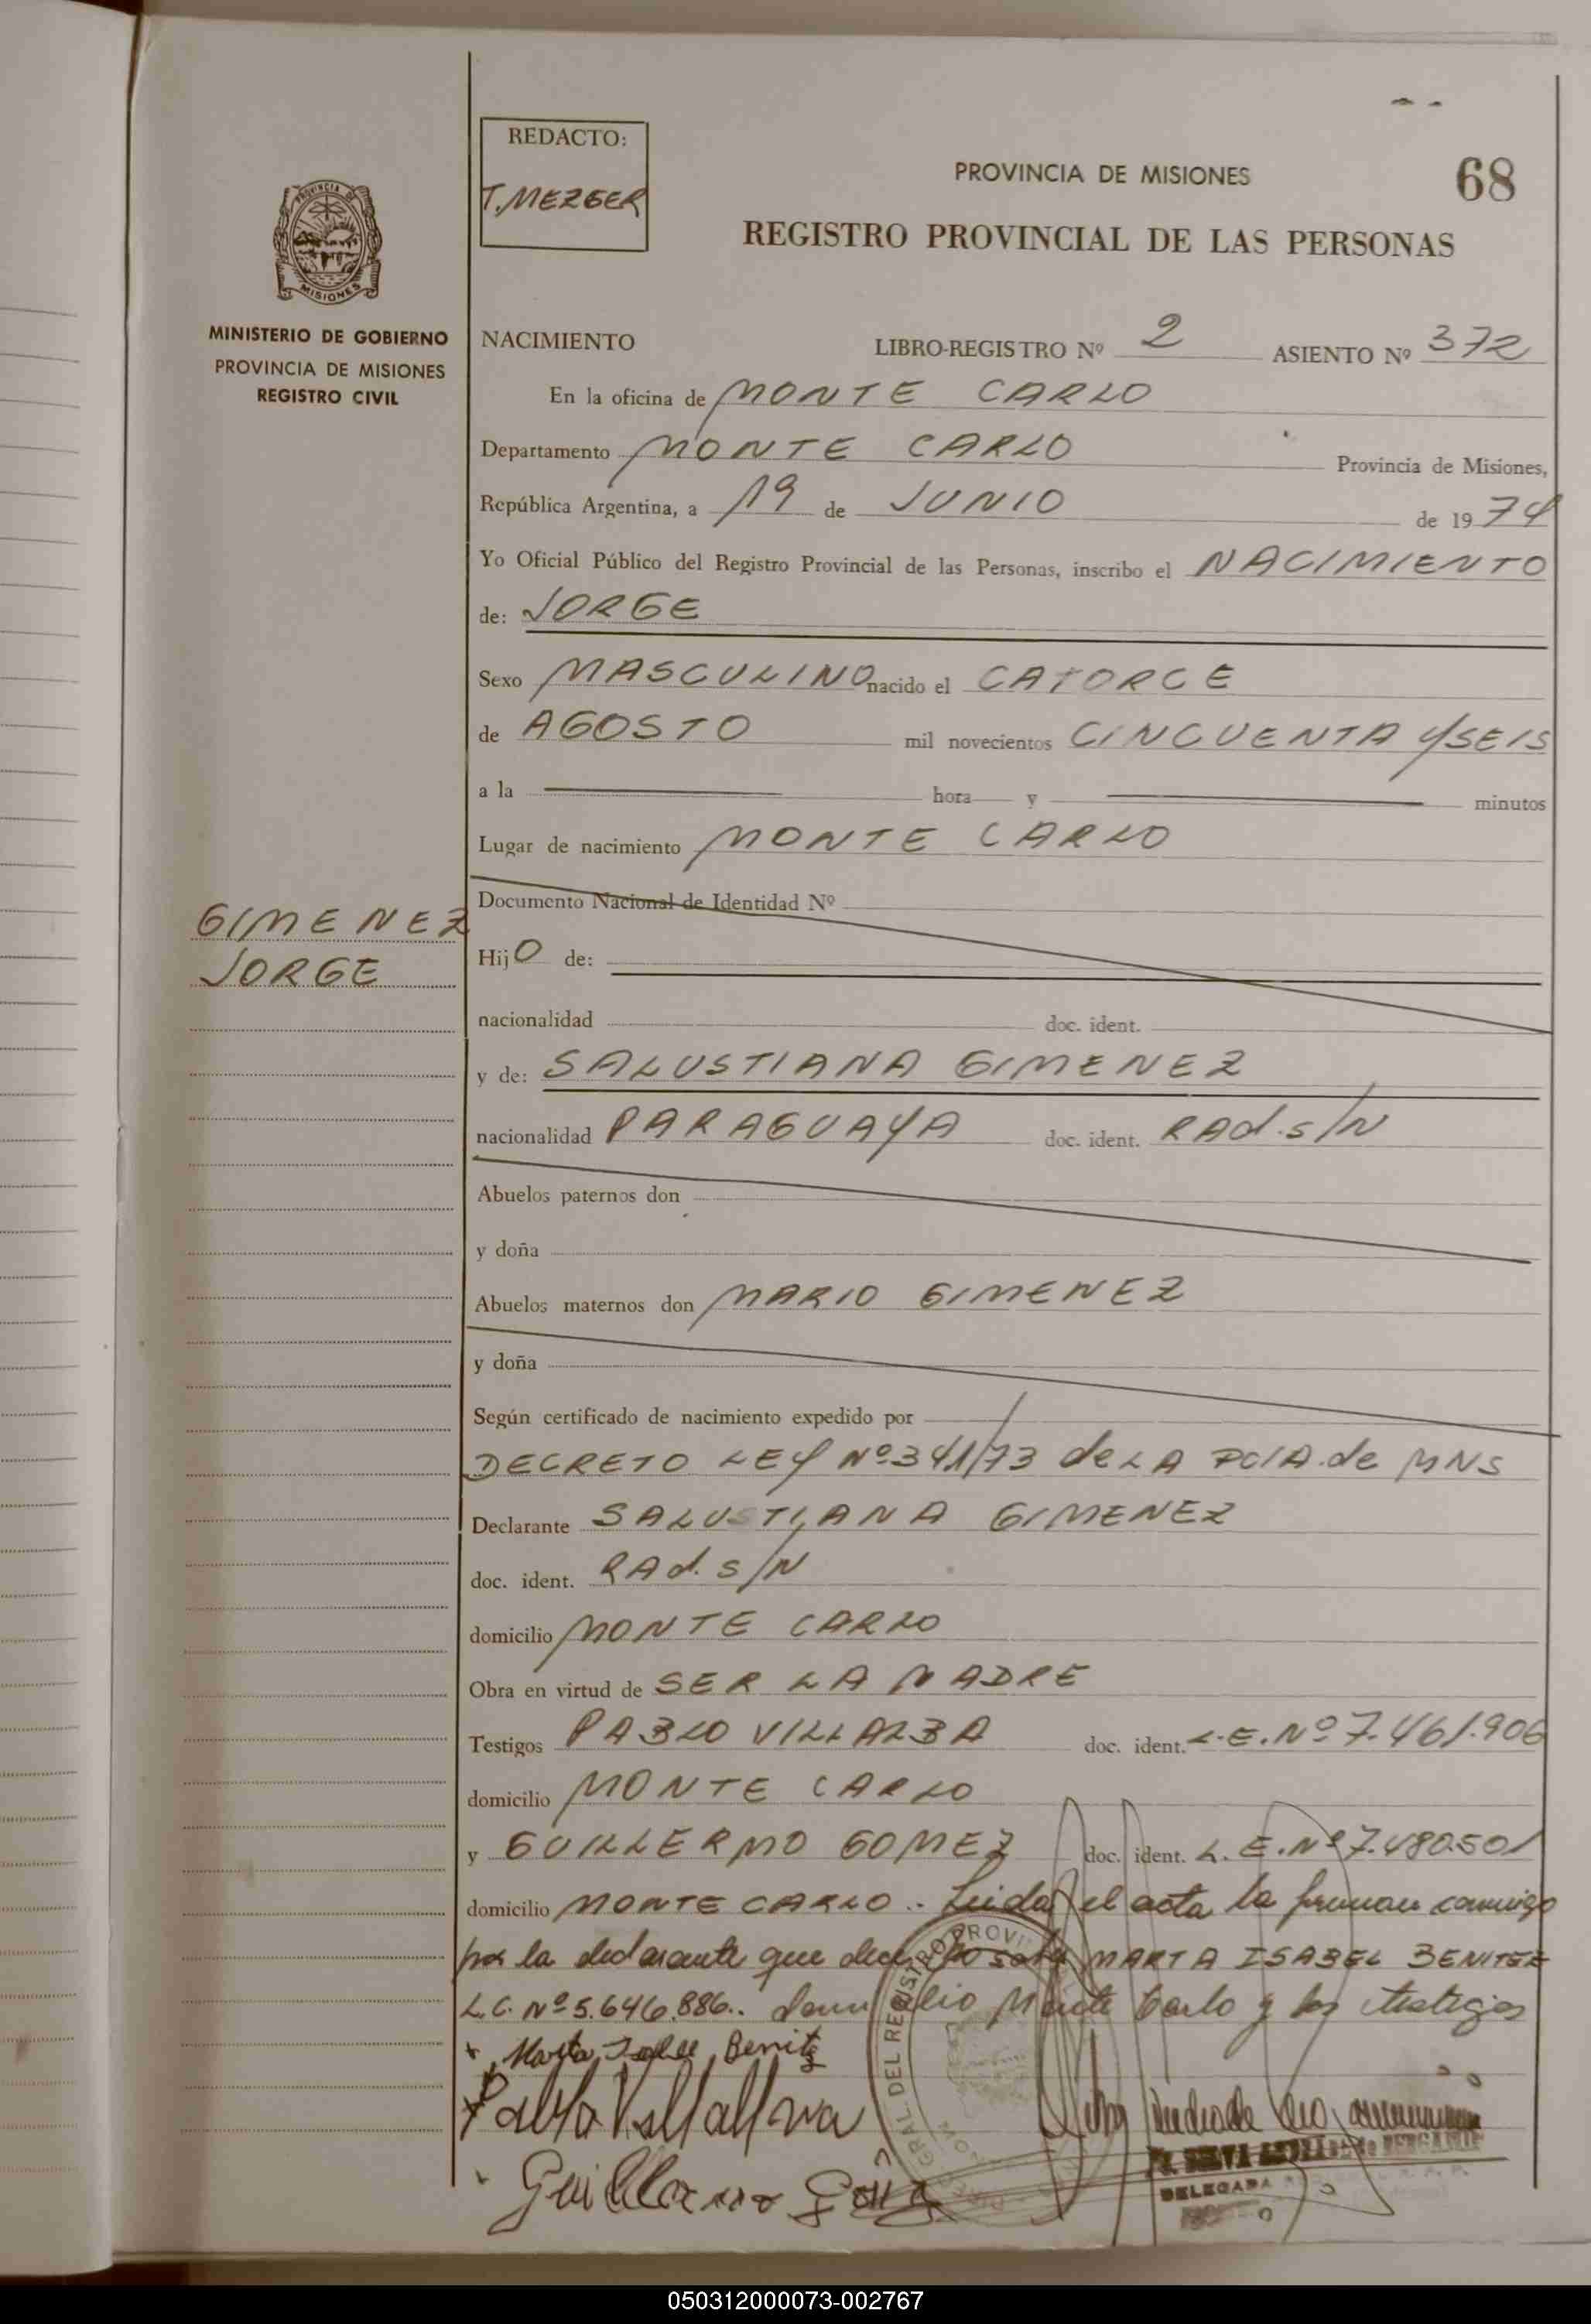 REDACTO:
T. MEZGER
PROVINCIA DE MISIONES
68
REGISTRO PROVINCIAL DE LAS PERSONAS
PROVINCIA
MISIONES
MINISTERIO DE GOBIERNO
PROVINCIA DE MISIONES
REGISTRO CIVIL
NACIMIENTO LIBRO-REGISTRO Nº 2 ASIENTO Nº 372
En la oficina de MONTE CARLO
Departamento MONTE CARLO Provincia de Misiones,
República Argentina, a 19 de JUNIO de 1974
Yo Oficial Público del Registro Provincial de las Personas, inscribo el NACIMIENTO
de: JORGE
Sexo MASCULINO nacido el CATORCE
de AGOSTO mil novecientos CINCUENTA Y SEIS
a la hora y minutos
Lugar de nacimiento MONTE CARLO
Documento Nacional de Identidad Nº
GIMENEZ
JORGE
Hijo de:
nacionalidad doc. ident.
y de: SALUSTIANA GIMENEZ
nacionalidad PARAGUAYA doc. ident. RAd. S/N
Abuelos paternos don
y doña
Abuelos maternos don MARIO GIMENEZ
y doña
Según certificado de nacimiento expedido por
DECRETO LEY Nº 341/73 de LA PCIA. de MNS
Declarante SALUSTIANA GIMENEZ
doc. ident. RAd. S/N
domicilio MONTE CARLO
Obra en virtud de SER LA MADRE
Testigos PABLO VILLALBA doc. ident. L.E. Nº 7.461.906
domicilio MONTE CARLO
y GUILLERMO GOMEZ doc. ident. L.E. Nº 7.480.501
domicilio MONTE CARLO.. Leida el acta la firman conmigo
por la declarante que dece MARTA ISABEL BENITEZ
L.C. Nº 5.646.886.. domicilio Monte Carlo y los testigos
Marta Isabel Benitez
Pablo Villallva
Guillermo Gomez
DELEGADA
050312000073-002767